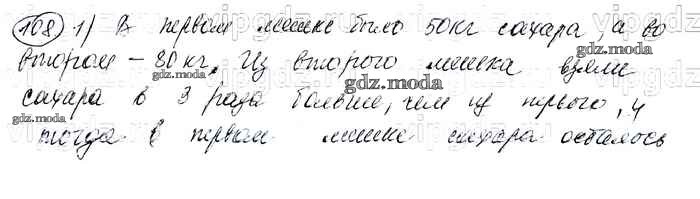 108 1) В первом мешке было 50кг сахара, а во
втором - 80 кг. Из второго мешка взяли
сахара в 3 раза больше, чем из первого, и
тогда в первом мешке сахара осталось
gdz.moda
gdz.moda
gdz.moda
gdz.moda
gdz.moda
gdz.moda